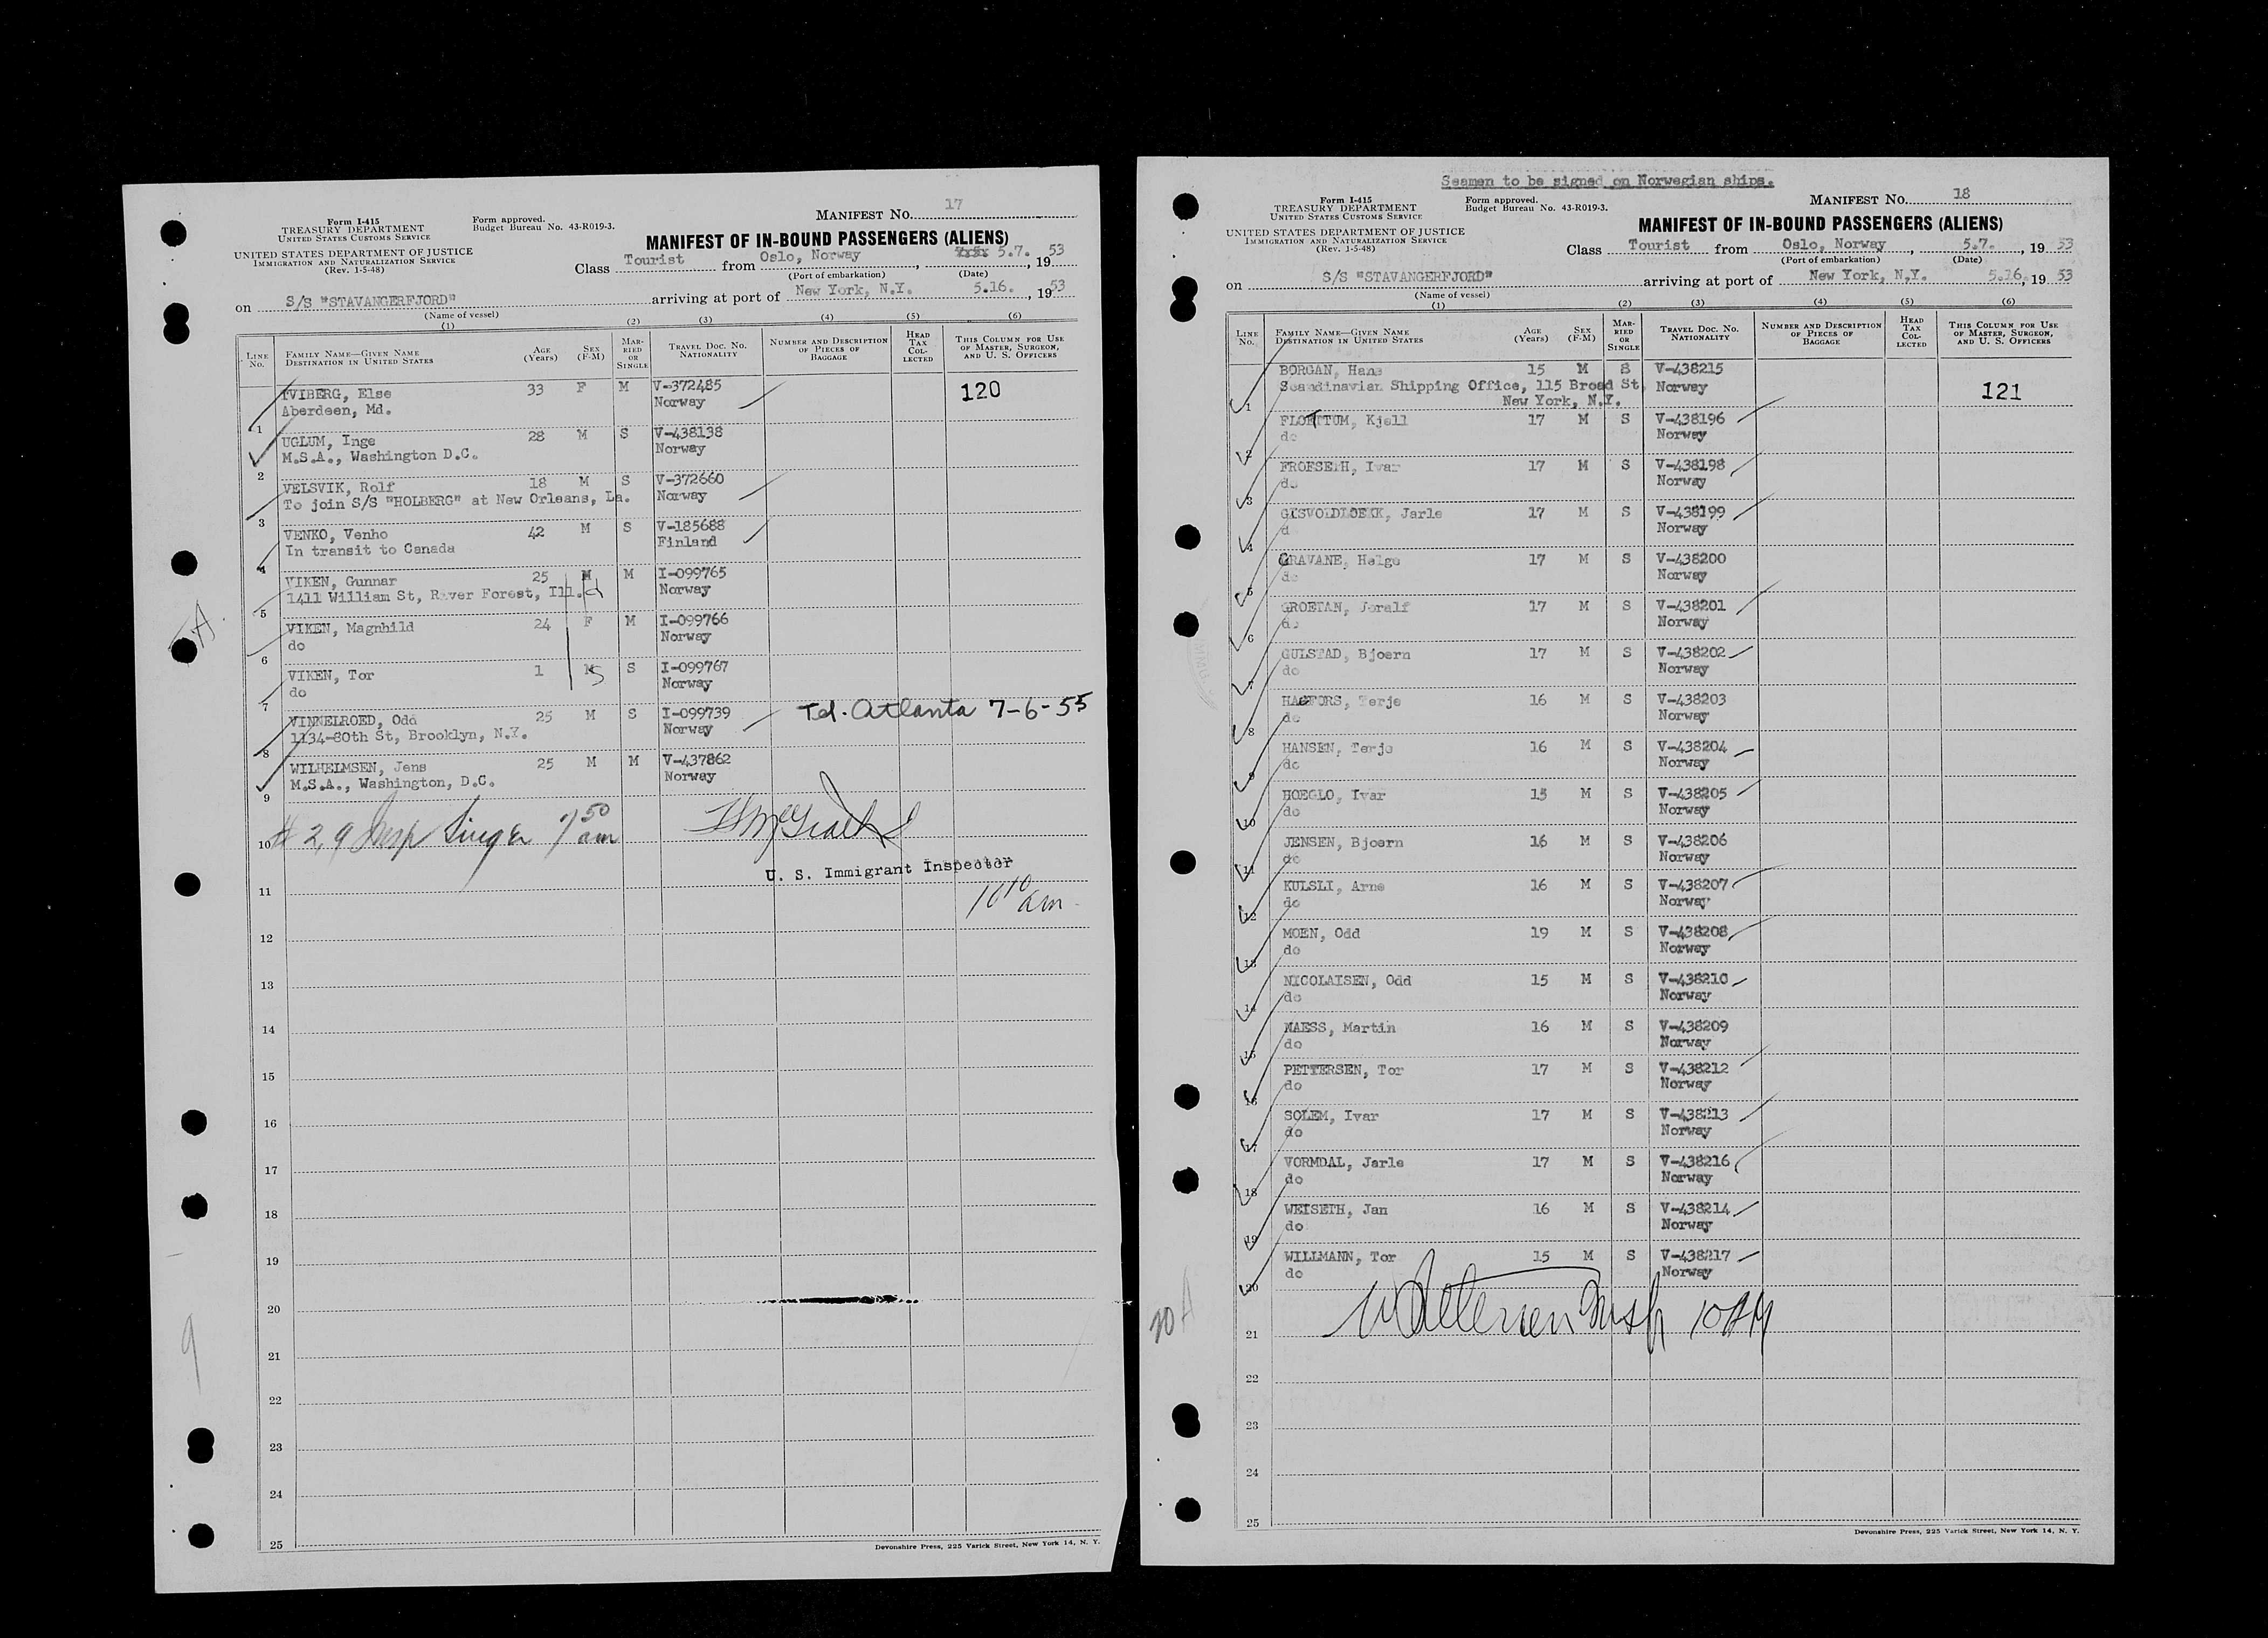 Form I-415
TREASURY DEPARTMENT
UNITED STATES CUSTOMS SERVICE
UNITED STATES DEPARTMENT OF JUSTICE
IMMIGRATION AND NATURALIZATION SERVICE
(Rev. 1-5-48)
Form approved.
Budget Bureau No. 43-R019-3.
MANIFEST No. 17
MANIFEST OF IN-BOUND PASSENGERS (ALIENS)
Class Tourist from Oslo, Norway, 5.7. 1953
(Port of embarkation) (Date)
on S/S "STAVANGERFJORD" arriving at port of New York, N.Y. 5.16., 1953
(Name of vessel)
(1) (2) (3) (4) (5) (6)
LINE No. FAMILY NAME—GIVEN NAME DESTINATION IN UNITED STATES AGE (Years) SEX (F-M) MARRIED OR SINGLE TRAVEL DOC. No. NATIONALITY NUMBER AND DESCRIPTION OF PIECES OF BAGGAGE HEAD TAX COLLECTED THIS COLUMN FOR USE OF MASTER, SURGEON, AND U. S. OFFICERS
VIBERG, Else 33 F M V-372485 120
1 Aberdeen, Md. Norway
UGLUM, Inge 28 M S V-438138
2 M.S.A., Washington D.C. Norway
VELSVIK, Rolf 18 M S V-372660
3 To join S/S "HOLBERG" at New Orleans, La. Norway
VENKO, Venho 42 M S V-185688
4 In transit to Canada Finland
VIKEN, Gunnar 25 M M I-099765
5 1411 William St, River Forest, Ill. Norway
VIKEN, Magnhild 24 F M I-099766
6 do Norway
VIKEN, Tor 1 M S I-099767
7 do Norway
VINNELROED, Odd 25 M S I-099739 Tel. Atlanta 7-6-55
8 1134-80th St, Brooklyn, N.Y. Norway
WILHELMSEN, Jens 25 M M V-437862
9 M.S.A., Washington, D.C. Norway
10 # 2, 9 Insp Singer 7 50 am
U. S. Immigrant Inspector
11 10 10 am
12
13
14
15
16
17
18
19
20
21
22
23
24
25
Devonshire Press, 225 Varick Street, New York 14, N. Y.
9
Seamen to be signed on Norwegian ships.
Form I-415
TREASURY DEPARTMENT
UNITED STATES CUSTOMS SERVICE
UNITED STATES DEPARTMENT OF JUSTICE
IMMIGRATION AND NATURALIZATION SERVICE
(Rev. 1-5-48)
Form approved.
Budget Bureau No. 43-R019-3.
MANIFEST No. 18
MANIFEST OF IN-BOUND PASSENGERS (ALIENS)
Class Tourist from Oslo, Norway, 5.7., 1953
(Port of embarkation) (Date)
on S/S "STAVANGERFJORD" arriving at port of New York, N.Y. 5.16., 1953
(Name of vessel)
(1) (2) (3) (4) (5) (6)
LINE No. FAMILY NAME—GIVEN NAME DESTINATION IN UNITED STATES AGE (Years) SEX (F-M) MARRIED OR SINGLE TRAVEL DOC. No. NATIONALITY NUMBER AND DESCRIPTION OF PIECES OF BAGGAGE HEAD TAX COLLECTED THIS COLUMN FOR USE OF MASTER, SURGEON, AND U. S. OFFICERS
BORGAN, Hans 15 M S V-438215
Scandinavian Shipping Office, 115 Broad St, Norway 121
1 New York, N.Y.
FLOETTUM, Kjell 17 M S V-438196
2 do Norway
FROESETH, Ivar 17 M S V-438198
3 do Norway
GISVOLDLOEKK, Jarle 17 M S V-438199
4 d Norway
GRAVANE, Helge 17 M S V-438200
5 do Norway
GROETAN, Joralf 17 M S V-438201
6 do Norway
GULSTAD, Bjoern 17 M S V-438202
7 do Norway
HAGFORS, Terje 16 M S V-438203
8 do Norway
HANSEN, Terje 16 M S V-438204
9 do Norway
HOEGLO, Ivar 15 M S V-438205
10 do Norway
JENSEN, Bjoern 16 M S V-438206
11 do Norway
KULSLI, Arne 16 M S V-438207
12 do Norway
MOEN, Odd 19 M S V-438208
13 do Norway
NICOLAISEN, Odd 15 M S V-438210
14 do Norway
NAESS, Martin 16 M S V-438209
15 do Norway
PETTERSEN, Tor 17 M S V-438212
16 do Norway
SOLEM, Ivar 17 M S V-438213
17 do Norway
VORMDAL, Jarle 17 M S V-438216
18 do Norway
WEISETH, Jan 16 M S V-438214
19 do Norway
WILLMANN, Tor 15 M S V-438217
20 do Norway
21 Insp 10 AM
22
23
24
25
Devonshire Press, 225 Varick Street, New York 14, N. Y.
20 A